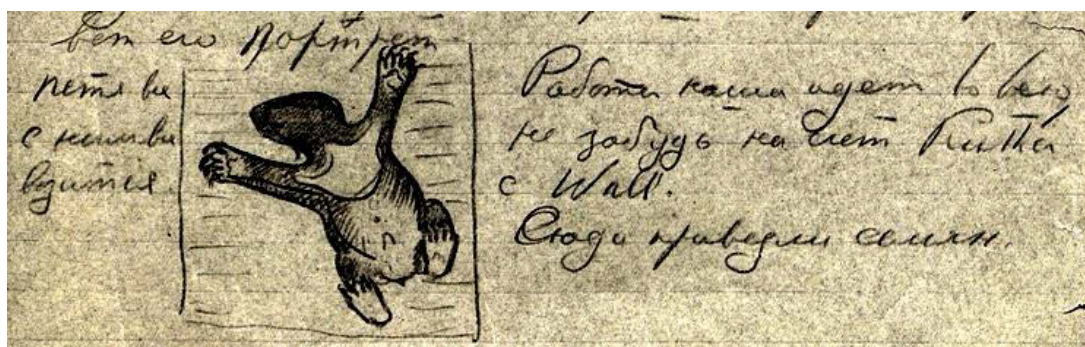 вот его портрет
Петя
с ним
возится.
Работа наша идет во всю,
не забудь насчет
с Wall.
Сюда привезли семян.